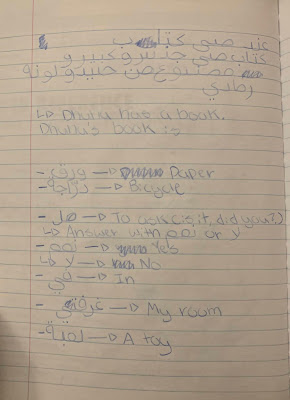 عند ضحى كتاب
كتاب ضحى جديد و كبير و
مصنوع من حديد و لونه
رمادي
↳ Dhuha has a book.
Dhuha's book is
- ورق → Paper
- دراجة → Bicycle
- هل → To ask (is it, did you?)
↳ Answer with نعم or لا
- نعم → Yes
↳ لا → No
- في → In
- غرفتي → My room
- لعبة → A toy